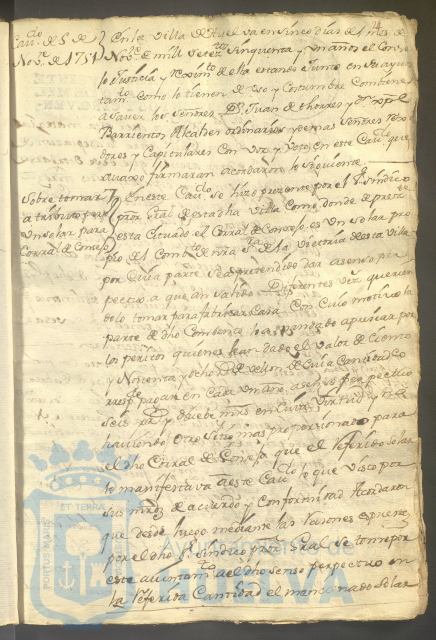 Cav.do de 5 de
Nov.re de 1751
En la Villa de Huelva en sinco dias del mes de
Nov.re de mill setez.os sinquenta y un años el Conse
jo Justicia y Reximi.to de ella estando Junto en su ayun
tam.to como lo tienen de uso y Costumbre Combiene
a Saver los Señores D.n Juan de thorres y D.n
Barrientos Alcaldes ordinarios y demas Señores Rexi
dores y Capitulares con voz y voto en este Cav.do que
avaxo firmaran acordaron lo siguiente
Sobre tomar
a tributo
un solar para
Corral de Consejo
En este Cav.do se hizo presente por el S. Sindico
pror. Gral de esta dha Villa como donde de press.te
esta situado el Corral de Consejo es un solar pro
pio del Comb.to de nra S.ra de la Victoria de esta Villa
por Cuia parte se a pretendido dar a senso per
pectuo a que an salido Diferentes vez.s queren
dolo tomar para fabricar Casa Con Cuio motivo la
parte de dho Combento lo a mandado apreciar por
los peritos quienes le an dado el valor de Ciento
y Noventa y ocho R.s de vellon de Cuia Cantidad
pagar en Cada un año a senso perpectuo
seis R.s y mrs en Cuia Virtud y no
haviendo otro sitio mas proporsionado para
el dho Corral de Consejo que el Referido solar
lo manifestava a este Cav.do lo que visto por
sus mrds de acuerdo y Conformidad Acordaron
que desde luego mediante las Rasones expuestas
por el dho S. Sindico pror. Gral se tome por
este aiuntam.to a el dho senso perpectuo en
la Referida Cantidad el mansionado solar
ET TERRAE
PORTUS MARIS
Ayuntamiento de
HUELVA